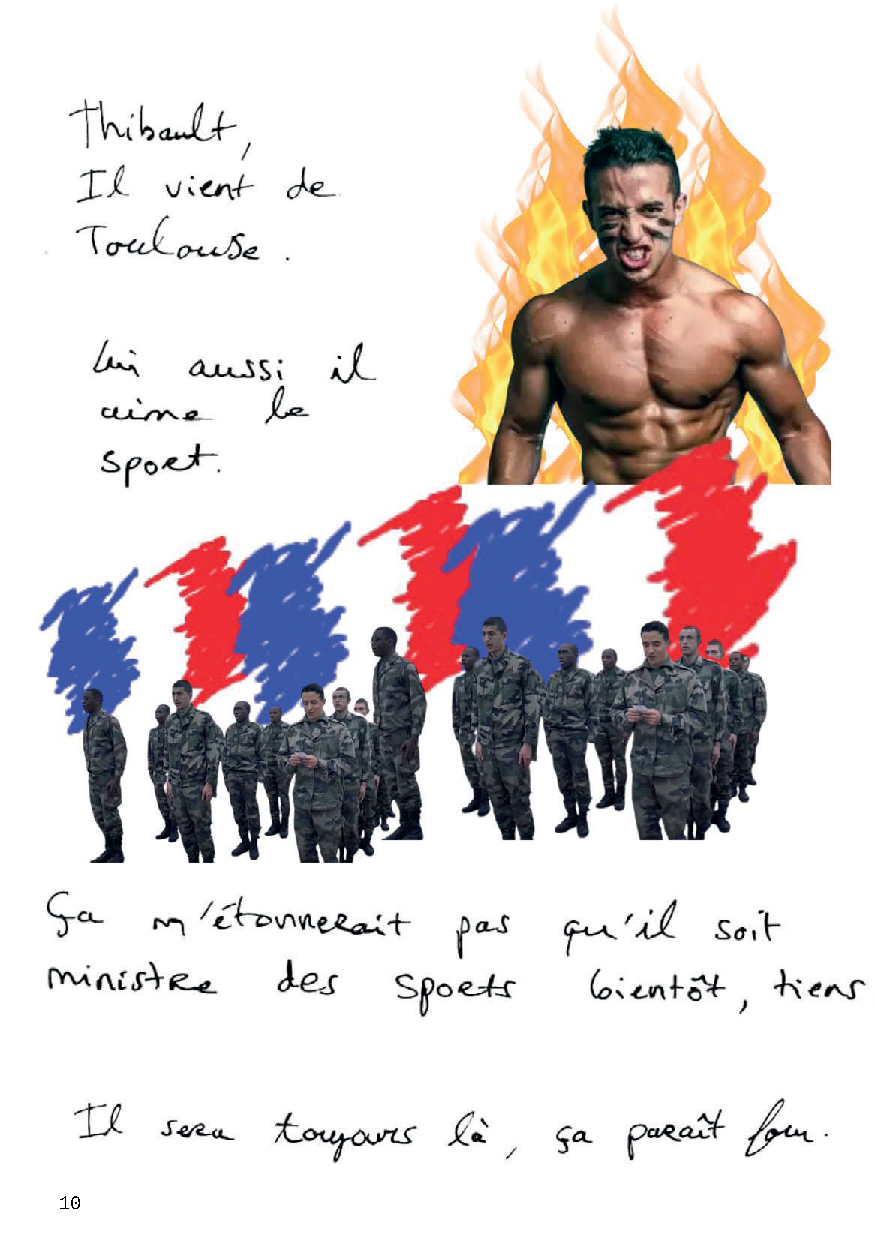 Thibault,
Il vient de
Toulouse.
Lui aussi il
aime le
sport.
Ça m'étonnerait pas qu'il soit
ministre des sports bientôt, tiens
Il sera toujours là, ça paraît fou.
10